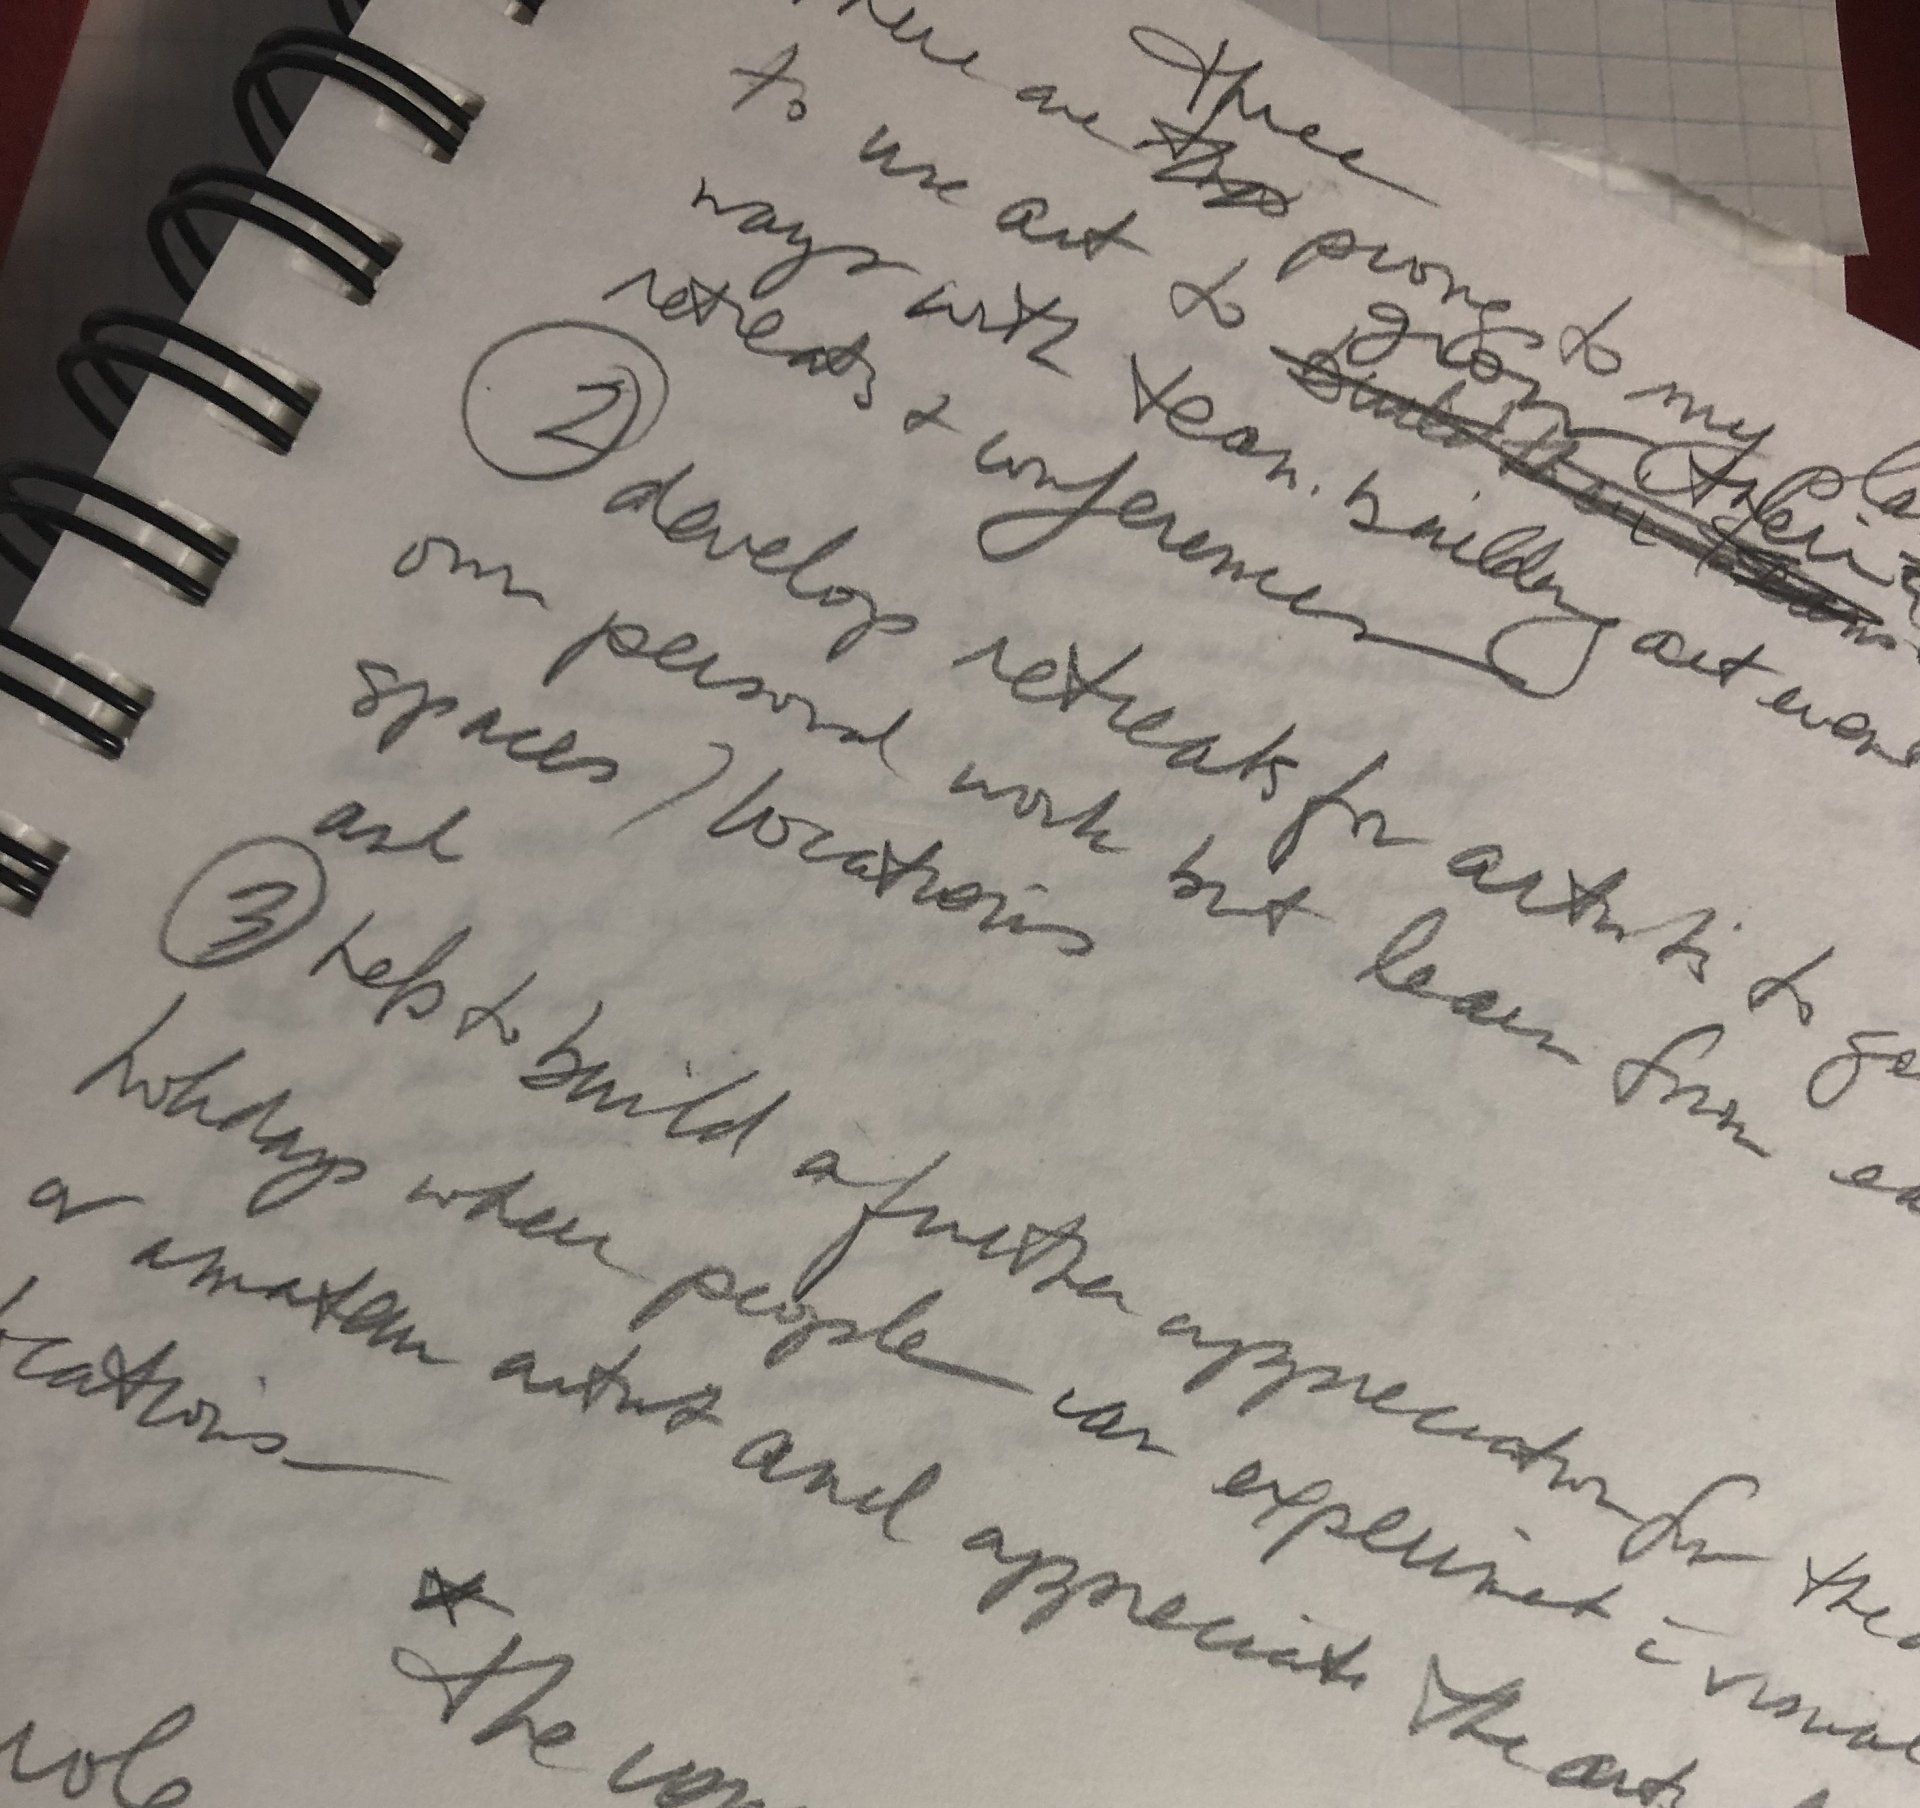 three
there are prong to my pla
to use art to grow
ways with team building art even
retreats & conferences
2 develop retreats for artists to ge
our personal work but learn from ea
spaces / locations
and
3 help to build a further appreciation for the
holidays where people can experiment c visual
or amateur artist and appreciate the arts
cations
*
The
role